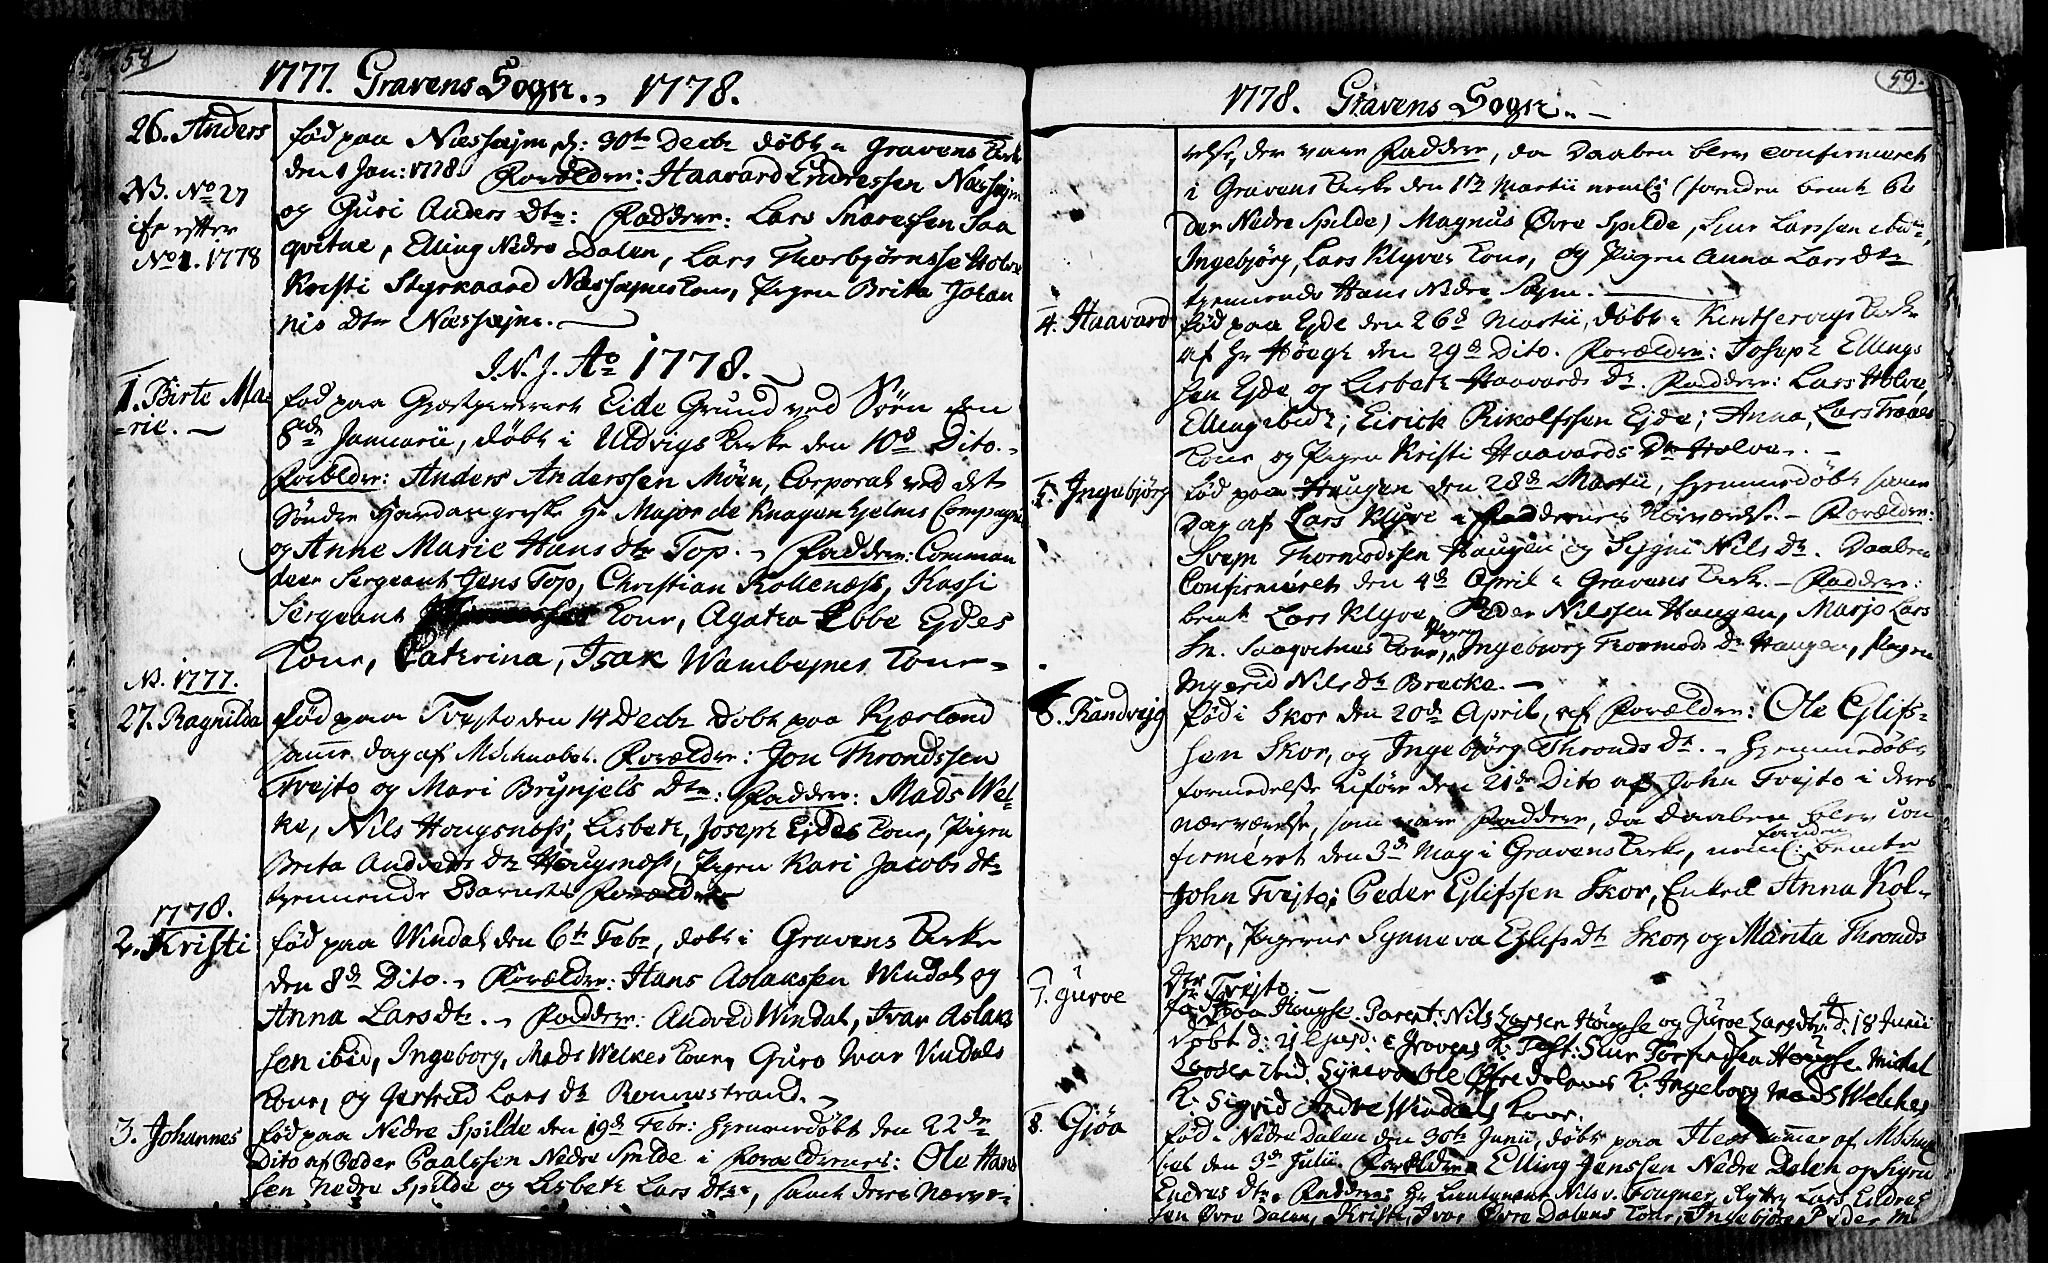 58
1777. Gravens Sogn. 1778.
26. Anders
fød paa Næshejm d: 30te Decbr døbt i Gravens Kirke
den 1 Jan: 1778. Forældre: Haavard Endressen Næshejm
NB. No 27
og Guri Anders Dtr: Faddere: Lars Snaressen Saa
ise efter
qvitne, Elling Nedre Dalen, Lars Thorbjørnsse Holve
No 1. 1778
Kristi Styrkaard Næshejms Kone, Pigen Brita Johan
nis Dtr Næshejm.
J.N.J. Ao 1778.
1. Birte Ma-
fød paa Gjestgiveriet Eide Grund ved Søen den
rie.
8de Januarii, døbt i Uldvigs Kirke den 10d Dito.
Forældre: Anders Anderssen Møen, Corporal ved det
Søndre Hardangerske Hr Major de Knagenhjelms Compagnie
og Anne Marie Hans dtr Top. Faddere: Comman
deer Sergeant Jens Top, Christian Kollenæss, Kassi
Sergeant Kone, Agatea Ebbe Ejdes
Kone, Catrina, Isak Wambejnes Kone
NB. 1777.
27. Ragnilda
fød paa Tvejto den 14 Decbr døbt paa Kjærland
samme dag af M Schnabel. Forældre: Jon Throndssen
Tvejto og Mari Brynjels Dtr: Faddere: Mads Wel-
ke, Nils Hougsnæss, Lisbeth, Joseph Ejdes Kone, Pigen
Brita Andveds Dtr Hougsnæss, Pigen Kari Jacobs dtr
tjennende Barnets Forældre
1778.
2. Kristi
fød paa Windal den 6te Febr, døbt i Gravens Kirke
den 8de Dito. Forældre: Hans Aslakssen Windal og
Anna Lars dtr. Faddere: Andved Windal, Ivar Aslaks
sen ibid, Ingeborg, Mads Welkes Kone, Guro Ivar Vindals
Kone, og Gertrud Lars dtr Rønnestrand.
3. Johannes
fød paa Nedre Spilde den 19de Febr: hjemmedøbt den 22de
Dito af Peder Paalssen Nedre Spilde i Forældrenes: Ole Hans
sen Nedre Spilde og Lisbeth Lars dtrs, samt deres Nærvæ-
59.
1778. Gravens Sogn.
relse, der vare Faddere, da Daaben blev confirmeret
i Gravens Kirke den 1ste Martii nemlig (foruden bemte Pe
der Nedre Spilde) Magnus Øvre Spilde, Siur Larssen ibid,
Ingebjørg, Lars Klyves Kone, og Pigen Anna Lars dtr
tjennende Hans Nedre Sejm.
4. Haavard
fød paa Ejde den 26de Martii, døbt i Kintservigs Kirke
af Hr Høegh den 29de Dito. Forældre: Joseph Ellings
sen Ejde og Lisbeth Haavards Dtr. Faddere: Lars Holve,
Elling ibid; Eirick Rikolfssen Ejde; Anna, Lars Traaes
Kone og Pigen Kristi Haavards Dtr Holve.
5. Ingebjørg
fød paa Haugen den 28de Martii, hjemmedøbt samme
Dag af Lars Klyve i Faddernes Nærværelse. Forældre:
Svejn Thormodssen Haugen og Sygni Nils Dtr. Daaben
Confirmeret den 4de April i Gravens Kirke. Faddere:
bemt Lars Klyve, Peder Nilssen Haugen, Marjo Lars
Sn. Saaqvitnes Kone, Pigen Ingeborg Thormods Dtr Haugen, Pigen
Ingerid Nils dtr Bracke.
6. Randvejg
fød i Skor den 20de April, af Forældre: Ole Ejlifs-
sen Skor, og Ingebjørg Thronds Dtr. Hjemmedøbt
formedelst uføre den 21de Dito af John Tvejto i deres
nærværelse, som vare Faddere, da Daaben blev con
firmeret den 3de Maj i Gravens Kirke, neml: foruden bemte
John Tvejto; Peder Ejlifssen Skor, Enken Anna Kol-
skor, Pigerne Synneva Ejlifs dtr Skor, og Marita Thronds
Dtr Tvejto.
7. Gurve
fød paa Høugse. Parent: Nils Larsen Høugse og Gurve Larsdtr d. 18 Junii
døbt d: 21 Ejusd: i Gravens K: Test: Siur Torfindsen Høugse, Michel
Larsen ibid, Syneva Ole Øfre Dalens K. Ingeborg Mads Welckes
K. Sigrid Andve Windals Kone.
8. Gjøa
fød i Nedre Dalen den 30te Junii, døbt paa Hestammer af M Schna
bel den 3de Julii. Forældre Elling Jenssen Nedre Dalen og Sigrid
Endres dtr. Faddere: Hr Lieutenant Nils v. Fougner, Rytter Lars Endres
sen Øvre Dalen, Kristi, Ivar Øvre Dalens Kone, Ingebjørg Peder